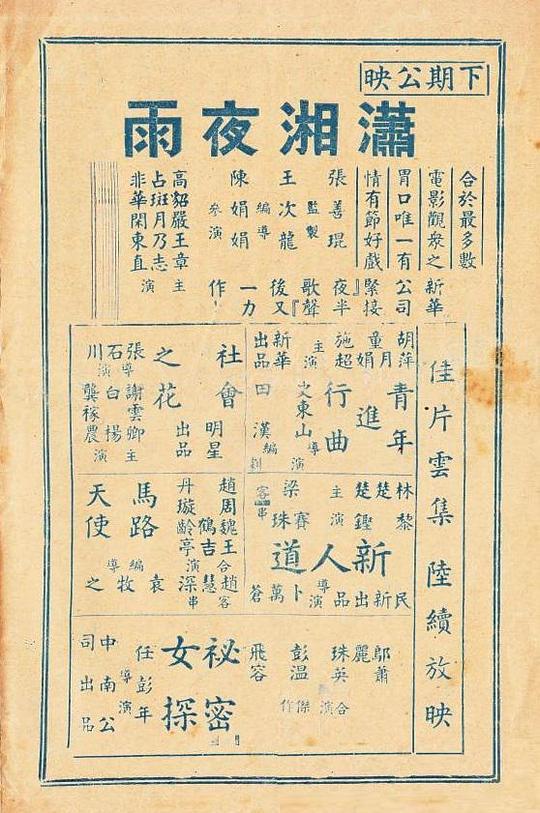 下期公映
瀟湘夜雨
合於最多數
電影觀衆之
胃口唯一有
情有節好戲
新華
公司
緊接
『夜半
歌聲』
後又
一力
作
張善琨
監製
王次龍
編導
陳娟娟
參演
高貂嚴王章
占斑月乃志
非華閑東直
主演
佳片雲集陸續放映
胡萍
童月娟
施超
主演
青年進行曲
新華出品
史東山導演
田漢編劇
社會之花
明星出品
張石川
導演
謝雲卿
白楊
龔稼農
主演
林楚楚
黎鏗
主演
梁賽珠
客串
新人道
民新出品
卜萬蒼
導演
趙丹
周璇
魏鶴齡
王吉亭
合演
趙慧深
客串
馬路天使
袁牧之
編導
鄔麗珠
蕭英
合演
彭飛
溫容
傑作
祕密女探
任彭年
導演
中南公司出品